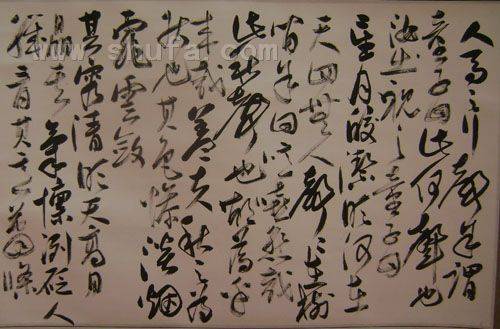 人馬之行聲予謂
童子曰此何聲也
汝出視之童子曰
星月皎潔明河在
天四無人聲聲在樹
間予曰噫嘻悲哉
此秋聲也胡為乎
來哉蓋夫秋之為
狀也其色慘淡烟
霏雲斂
其容清明天高日
晶其氣慄冽砭人
骨其意蕭條